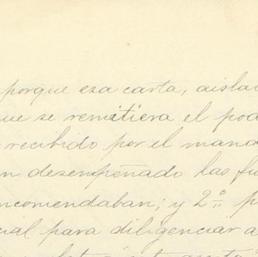 porque esa carta, aisla
ue se remitiera el pod
recibido por el mand
n desempeñado las fu
ncomendaban; y 2º p
cial para diligenciar a